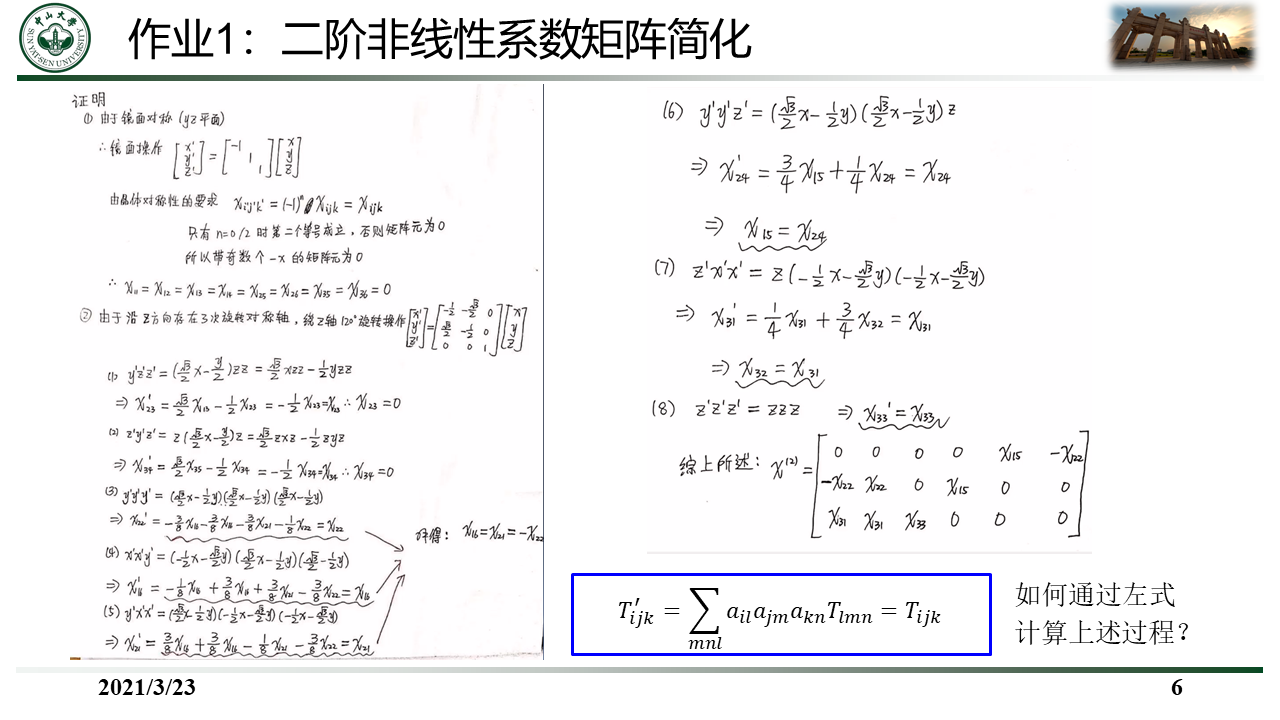 作业1：二阶非线性系数矩阵简化
中山大学
SUN YAT-SEN UNIVERSITY
证明
① 由于镜面对称 (yz平面)
∴ 镜面操作 [x' y' z'] = [-1 1 1] [x y z]
由晶体对称性的要求 χi'j'k' = (-1)ⁿ χijk = χijk
只有 n=0/2 时第二个等号成立，否则矩阵元为0
所以带奇数个 -x 的矩阵元为0
∴ χ11 = χ12 = χ13 = χ14 = χ25 = χ26 = χ35 = χ36 = 0
② 由于沿 z方向存在3次旋转对称轴，绕z轴120°旋转操作 [x' y' z'] = [-1/2 -√3/2 0; √3/2 -1/2 0; 0 0 1] [x y z]
(1) y'z'z' = (√3/2 x - y/2)zz = √3/2 xzz - 1/2 yzz
⇒ χ23' = √3/2 χ13 - 1/2 χ23 = -1/2 χ23 = χ23 ∴ χ23 = 0
(2) z'y'z' = z(√3/2 x - y/2)z = √3/2 zxz - 1/2 zyz
⇒ χ34' = √3/2 χ35 - 1/2 χ34 = -1/2 χ34 = χ34 ∴ χ34 = 0
(3) y'y'y' = (√3/2 x - 1/2 y)(√3/2 x - 1/2 y)(√3/2 x - 1/2 y)
⇒ χ22' = -3/8 χ16 - 3/8 χ16 - 3/8 χ21 - 1/8 χ22 = χ22
(4) x'x'y' = (-1/2 x - √3/2 y)(√3/2 x - 1/2 y)(√3/2 - 1/2 y)
⇒ χ16' = -1/8 χ16 + 3/8 χ16 + 3/8 χ21 - 3/8 χ22 = χ16
(5) y'x'x' = (√3/2 x - 1/2 y)(-1/2 x - 1/2 y)(-1/2 x - √3/2 y)
⇒ χ21' = 3/8 χ16 + 3/8 χ16 - 1/8 χ21 - 3/8 χ22 = χ21
可得： χ16 = χ21 = -χ22
(6) y'y'z' = (√3/2 x - 1/2 y)(√3/2 x - 1/2 y)z
⇒ χ24' = 3/4 χ15 + 1/4 χ24 = χ24
⇒ χ15 = χ24
(7) z'x'x' = z(-1/2 x - √3/2 y)(-1/2 x - √3/2 y)
⇒ χ31' = 1/4 χ31 + 3/4 χ32 = χ31
⇒ χ32 = χ31
(8) z'z'z' = zzz ⇒ χ33' = χ33
综上所述： χ⁽²⁾ =
0 0 0 0 χ15 -χ22
-χ22 χ22 0 χ15 0 0
χ31 χ31 χ33 0 0 0
T′ijk = ∑mnl ail ajm akn Tlmn = Tijk
如何通过左式
计算上述过程？
2021/3/23
6